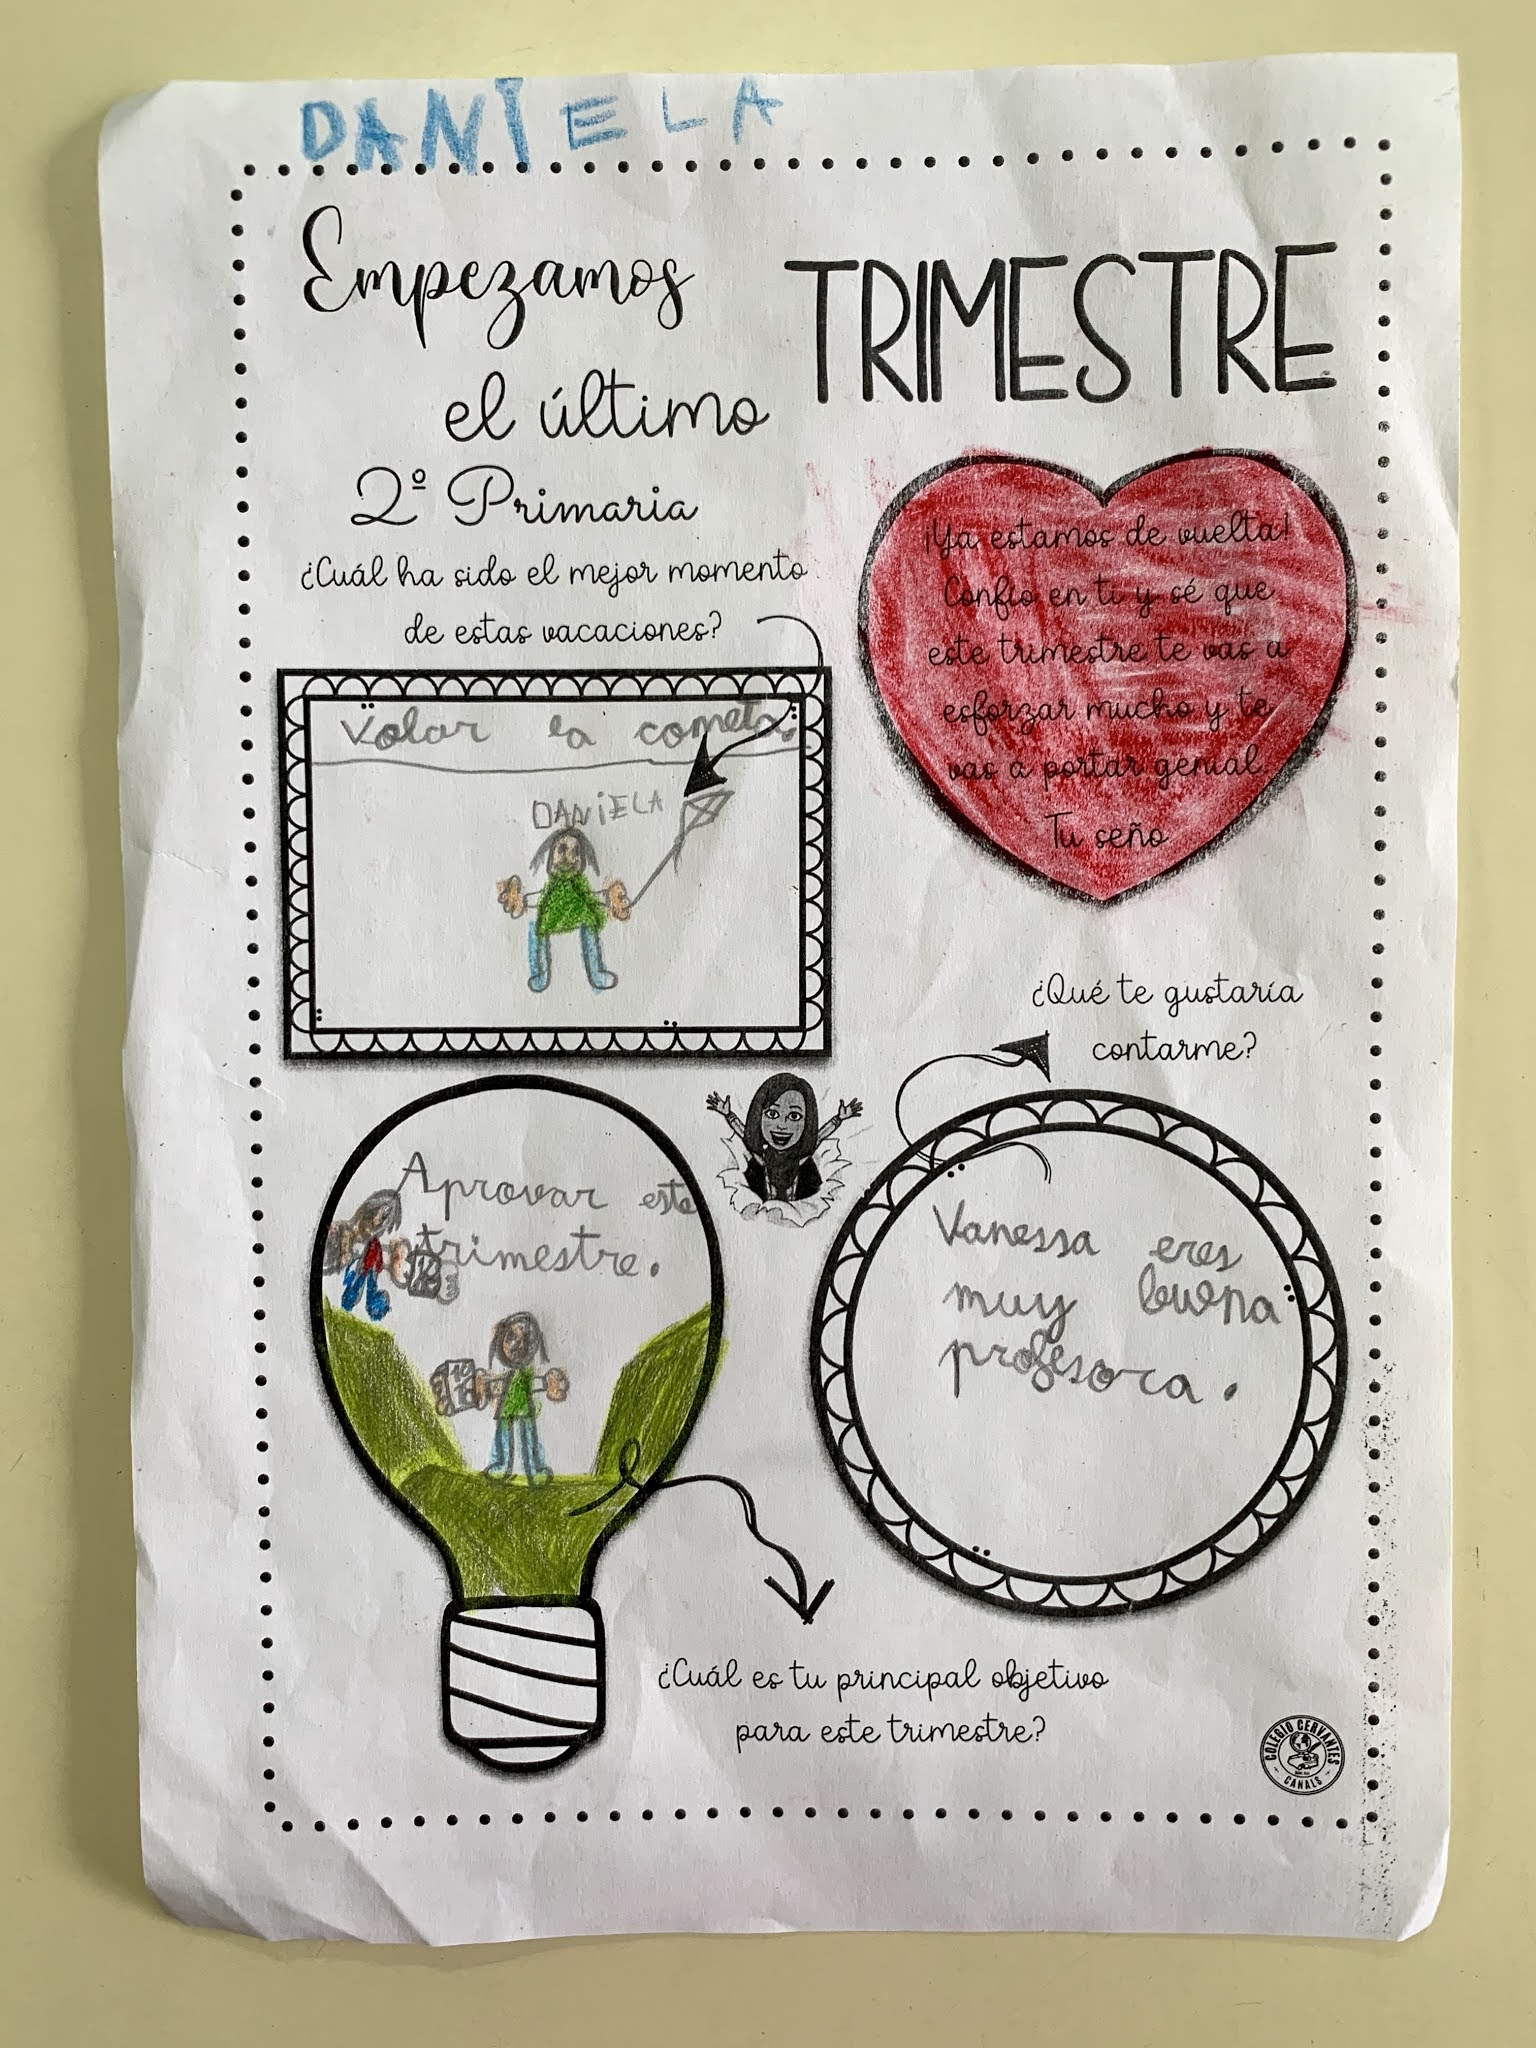 DANIELA
Empezamos
el último
TRIMESTRE
2º Primaria
¿Cuál ha sido el mejor momento
de estas vacaciones?
Volar la cometa.
DANIELA
¡Ya estamos de vuelta!
Confío en ti y sé que
este trimestre te vas a
esforzar mucho y te
vas a portar genial.
Tu seño
¿Qué te gustaría
contarme?
Vanessa eres
muy buena
profesora.
Aprovar este
trimestre.
10
¿Cuál es tu principal objetivo
para este trimestre?
COLEGIO CERVANTES
CANALS